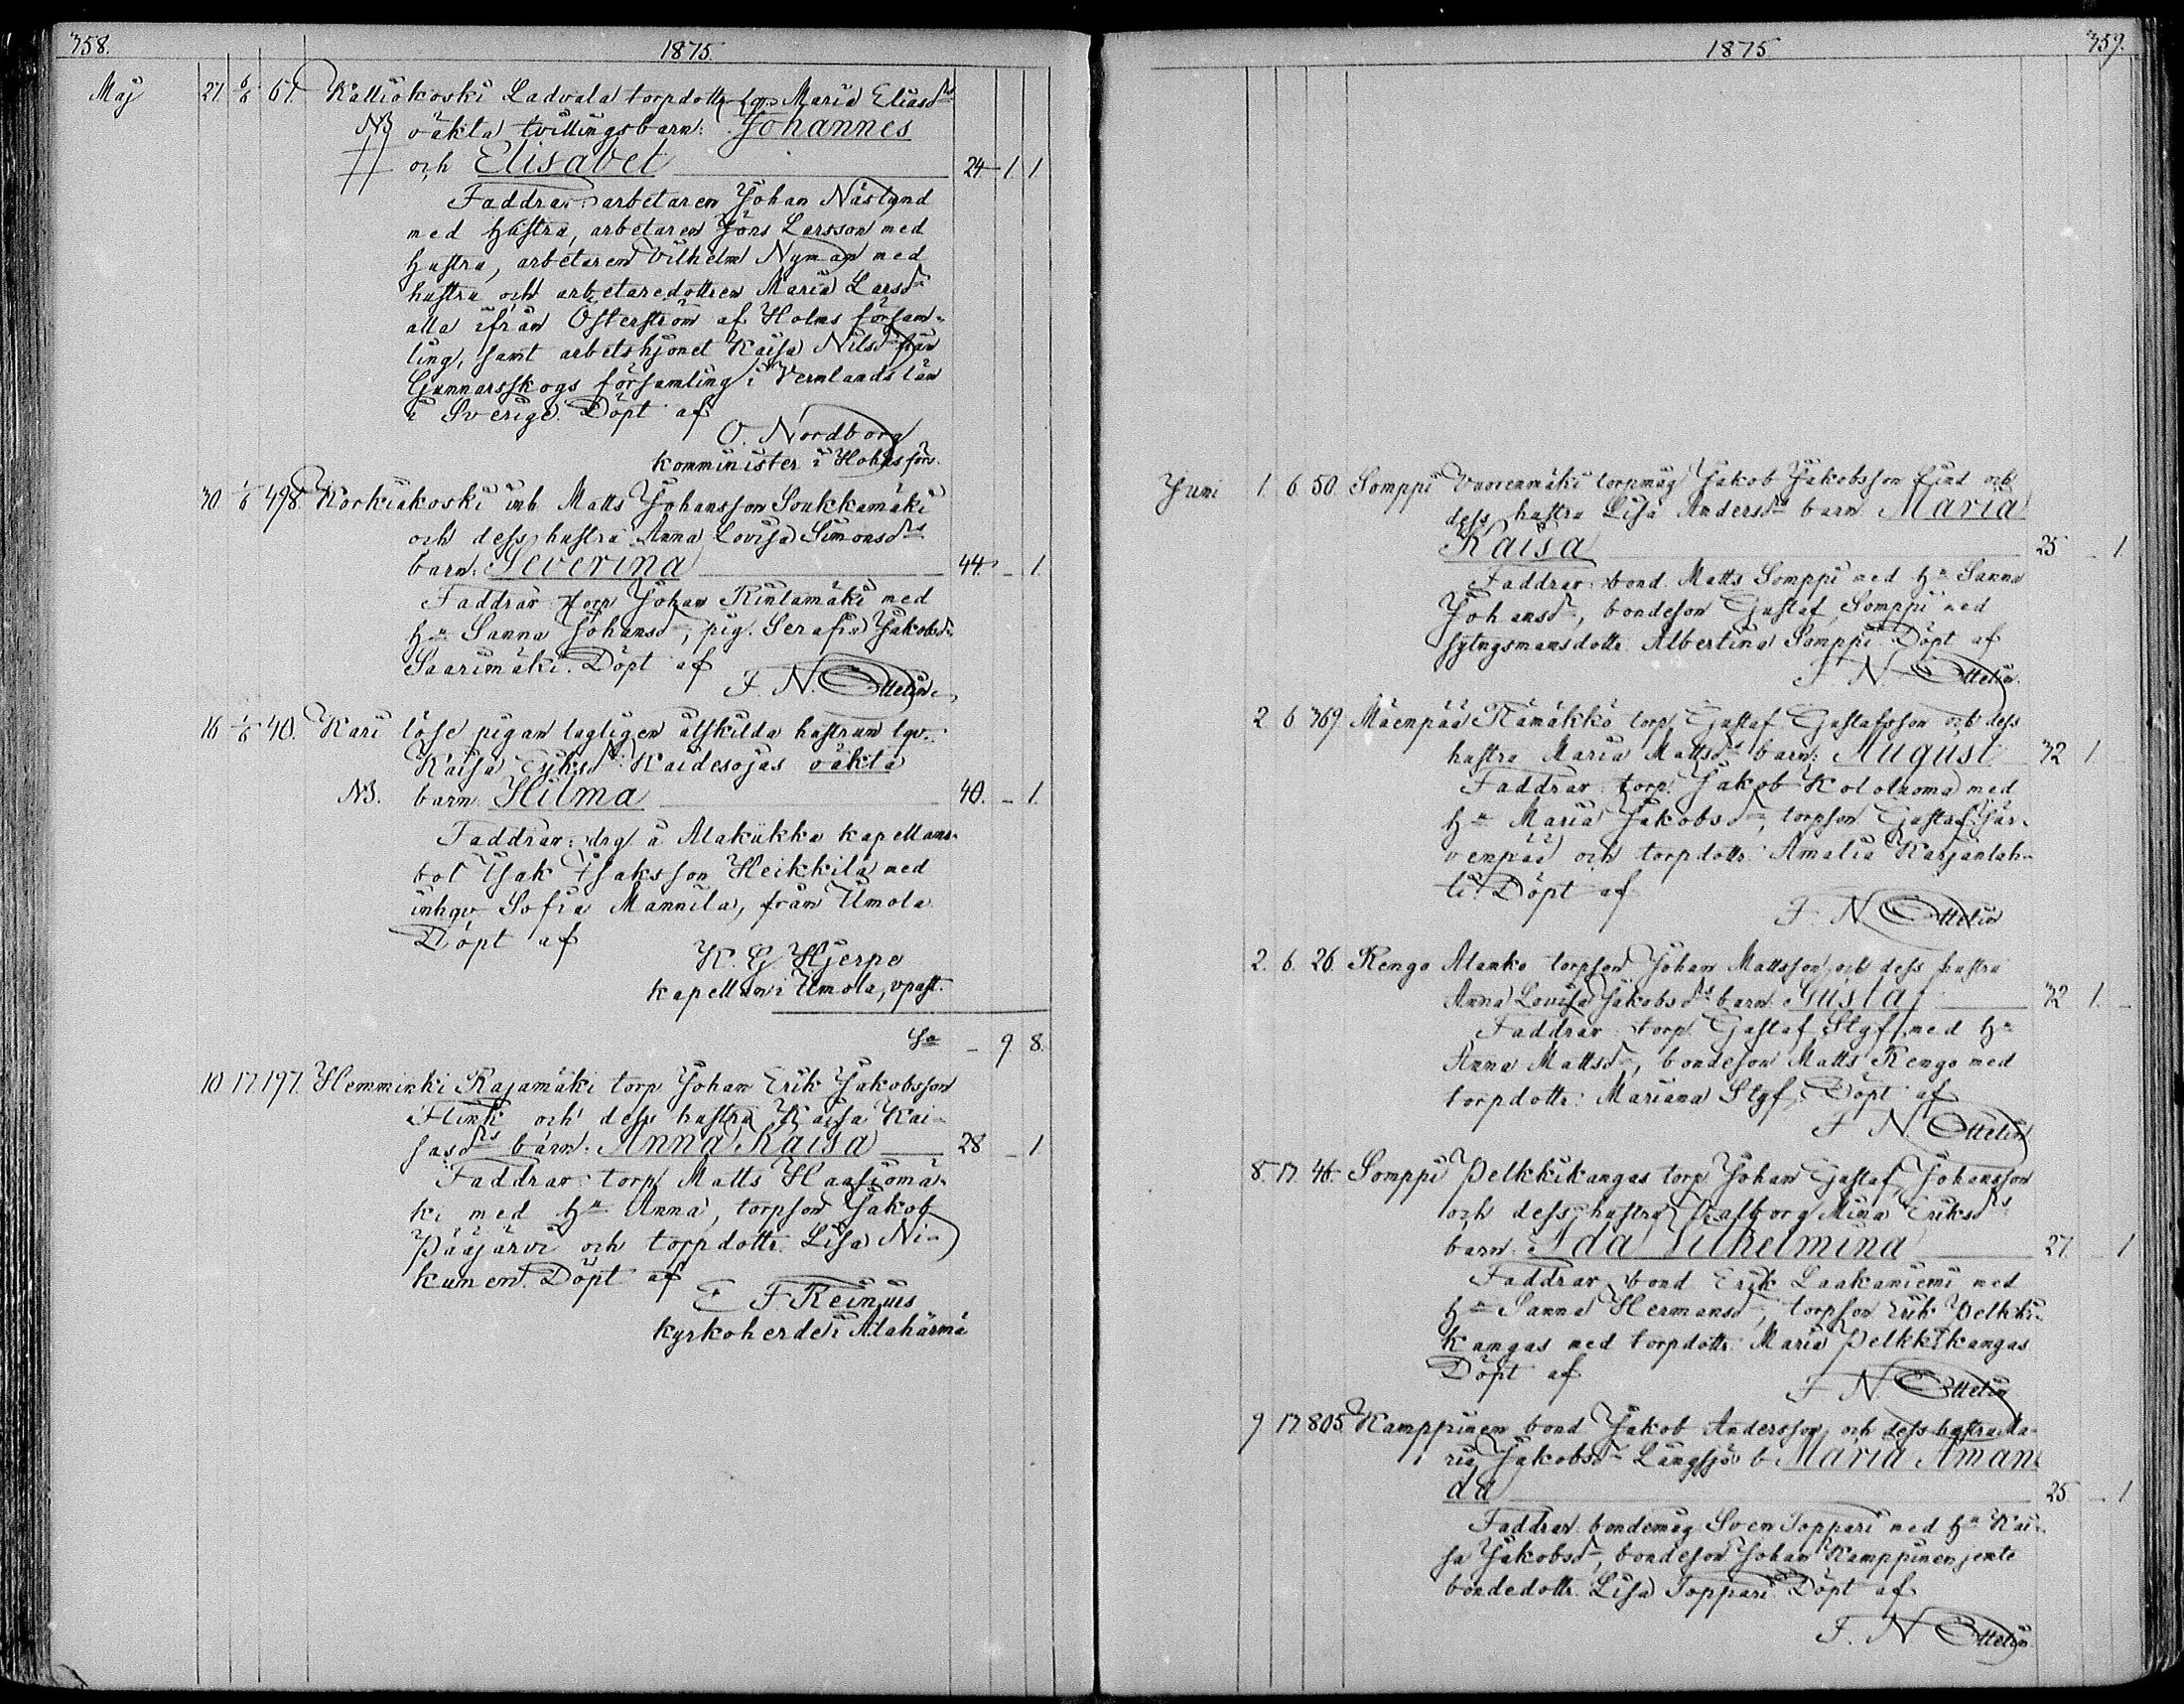 358.
1875.
Maj 27 6/6 67. Kalliokoski Ladvala torpdottr lqv. Maria Eliasdrs
NB oäkta tvillingsbarn: Johannes
och Elisabet 24 1. 1
Faddrar: arbetaren Johan Näslund
med hustru, arbetaren Jöns Larsson med
hustru, arbetaren Vilhelm Nyman med
hustru och arbetaredottren Maria Larsdr
alla ifrån Österström af Holms försam-
ling, samt arbetshjonet Kaisa Nilsdr från
Gunnarsskogs församling i Vermlands län
i Sverige. Döpt af
O. Nordborg
komminister i Holms förs.
30 1/6 498. Korkiakoski inh. Matts Johansson Soukkamäki
och dess hustru Anna Lovisa Simonsdrs
barn: Severina 44. – 1.
Faddrar: torp Johan Rintamäki med
hu Sanna Johansdr, pig. Serafia Jakobsdr
Saarimäki. Döpt af
F. N. Ottelin.
16 1/6 40. Kari löse pigan lagligen åtskilda hustrun lqv.
Kaisa Eriksdr Kaidesojas oäkta
NB. barn Hilma 40. – 1.
Faddrar: drg å Alakükka kapellans-
bol Isak Isaksson Heikkilä med
inhqv Sofia Mannila, från Ilmola
Döpt af
K. G. Hjerpe
kapellan i Ilmola, vpast.
Sa – 9. 8.
10 17. 197. Hemminki Rajamäki torp Johan Erik Jakobsson
Flink och dess hustru Kaisa Kai-
sasdrs barn: Anna Kaisa 28 – 1
Faddrar: torp Matts Haasiomä-
ki med hu Anna, torpson Jakob
Pääjärvi och torpdottr. Lisa Ni-
kunen. Döpt af
E F Reinius
kyrkoherde i Alahärmä
1875
359.
Juni 1. 6. 50. Somppi Vuorenmäki torpmåg Jakob Jakobsson Lind och
dess hustru Lisa Andersdrs barn Maria
Kaisa 25 – 1
Faddrar: bond. Matts Somppi med hu Sanna
Johansdr, bondeson Gustaf Somppi med
sytngsmansdottr Albertina Somppi Döpt af
F N. Ottelin.
2 6 369. Mäenpää Rämäkkö torp Gustaf Gustafsson och dess
hustru Maria Mattsdrs barn: August 32 1 –
Faddrar: torp. Jakob Kotoluoma med
hu Maria Jakobsdr, torpson Gustaf Jär-
venpää och torpdottr Amalia Karjanlah-
ti. Döpt af
F. N Ottelin
2. 6. 26. Rengo Alanko torpson Johan Mattsson och dess hustru
Anna Lovisa Jakobsdrs barn Gustaf 32 1. –
Faddrar: torp Gustaf Slgf med hu
Anna Mattsdr, bondeson Matts Rengo med
torpdottr: Mariana Slgf. Döpt af
F N. Ottelin
8. 17 46. Somppi Pelkkikangas torp Johan Gustaf Johansson
och dess hustru Valborg Mina Eriksdrs
barn Ida Vilhelmina 27. 1
Faddrar bond Erik Laakaniemi med
hu Sanna Hermansdr, torpson Erik Pelkki-
kangas med torpdottr: Maria Pelkkikangas
Döpt af
F N. Ottelin
9 17 805. Kamppinen bond Jakob Andersson och dess hustru Ma-
ria Jakobsdr Långsjö b Maria Aman-
da 25 – 1
Faddrar bondemåg Sven Toppari med hu Kai-
sa Jakobsdr, bondeson Johan Kamppinen jemte
bondedottr. Lisa Toppari Döpt af
F. N Ottelin